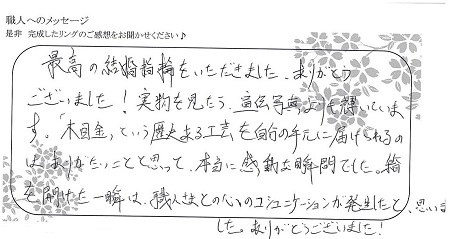 職人へのメッセージ
是非 完成したリングのご感想をお聞かせください♪
最高の結婚指輪をいただきました、ありがとう
ございました！実物を見たら、宣伝写真よりも輝いていま
す。「木目金」という歴史ある工芸を自分の手元に届けられるの
は、ありがたいことと思って、本当に感動な瞬間でした。箱
を開けた一瞬は、職人さまとの心のコミュニケーションが発生したと、思いま
した。ありがとうございました！